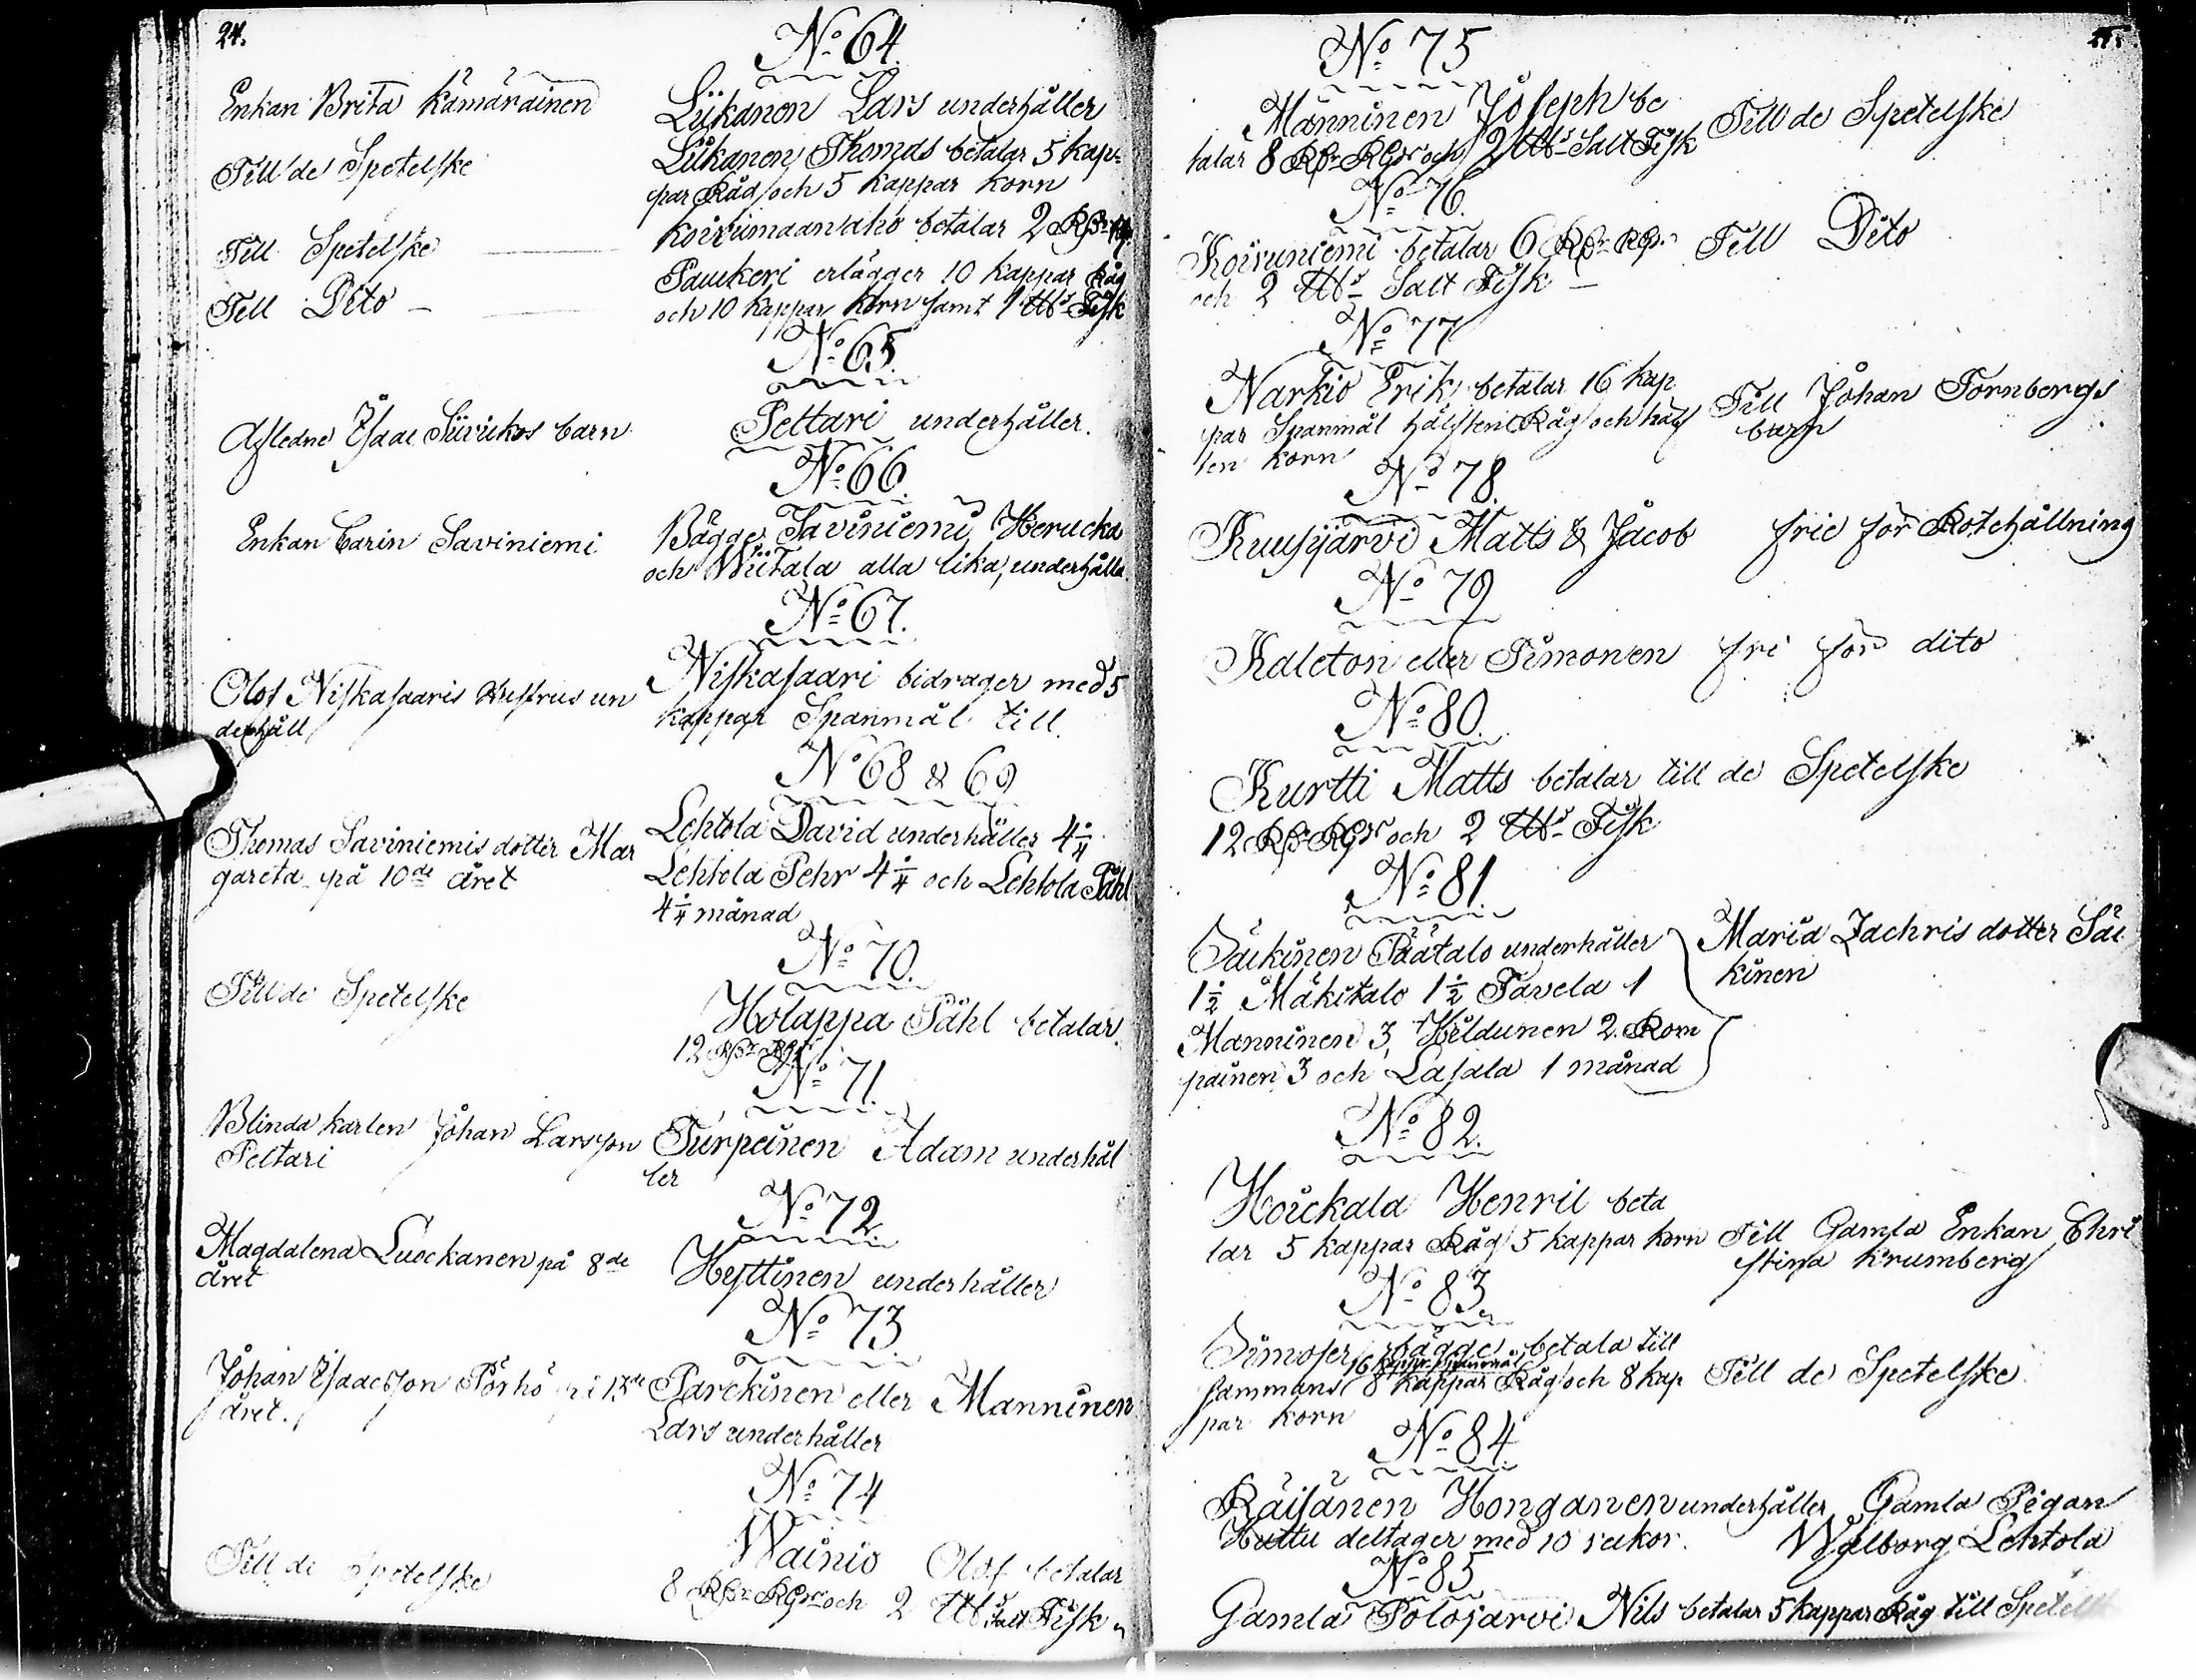 24.
No 64.
Enkan Brita Kämäräinen
Liikanen Lars underhåller
Till de Spetelske
Liikanen Thomas betalar 5 kap-
par Råg och 5 kappar korn
Till Spetelske
Koivumaanaho betalar 2
Till Dito
Paukeri erlägger 10 kappar Råg
och 10 kappar korn samt 1 Fisk
No 65.
Afledne Isaac Siivikos barn
Pettari underhåller.
No 66.
Enkan Carin Saviniemi
Bägge Saviniemi, Herucka
och Wiitala alla lika, underhålla
No 67.
Olof Niskasaaris Hustrus un
derhåll
Niskasaari bidrager med 5
kappar Spanmål till
No 68 & 69
Thomas Saviniemis dotter Mar
gareta på 10de året
Lehtola David underhåller 4
Lehtola Pehr 4 och Lehtola Påhl
4 månad
No 70.
Till de Spetelske
Holappa Påhl betalar
12
No 71.
Blinda karlen Johan Larsson
Peltari
Turpeinen Adam underhål
ler
No 72.
Magdalena Lueckanen på 8de
året
Hyttinen underhåller
No 73
Johan Isaacsson Pörhö på 13de
året.
Parckinen eller Manninen
Lars underhåller
No 74
Till de Spetelske
Wainio Olof betalar
8 och 2 Salt Fisk
No 75
Männinen Joseph be
talar 8 och 2 Salt Fisk
Till de Spetelske
No 76.
Koivuniemi betalar 6
och 2 Salt Fisk
Till Dito
No 77
Narkio Erik betalar 16 kap
par Spanmål hälften Råg och hälf
ten korn
Till Johan Tornbergs
barn
No 78.
Kuusijärvi Matts & Jacob
frie för Rotehållning
No 79
Kaleton eller Simonen fri för dito
No 80.
Kurtti Matts betalar till de Spetelske
12 och 2 Fisk
No 81.
Säikinen Päätalo underhåller
1½ Mäkitalo 1½ Tavela 1
Manninen 3, Hildunen 2. Rom
painen 3 och Lasala 1 månad
Maria Zachris dotter Säi
kinen
No 82.
Horckala Henric beta
lar 5 kappar Råg 5 kappar korn
Till Gamla Enkan Chri
stina Krumberg
No 83.
Simoser bägge betala till
16 kappar spanmål
sammans 8 kappar Råg och 8 kap
par korn
Till de Spetelske
No 84
Räisänen Honganen underhåller
Huttu deltager med 10 veckor.
Gamla Pigan
Walborg Lehtola
No 85
Gamla Polojärvi Nils betalar 5 kappar Råg till